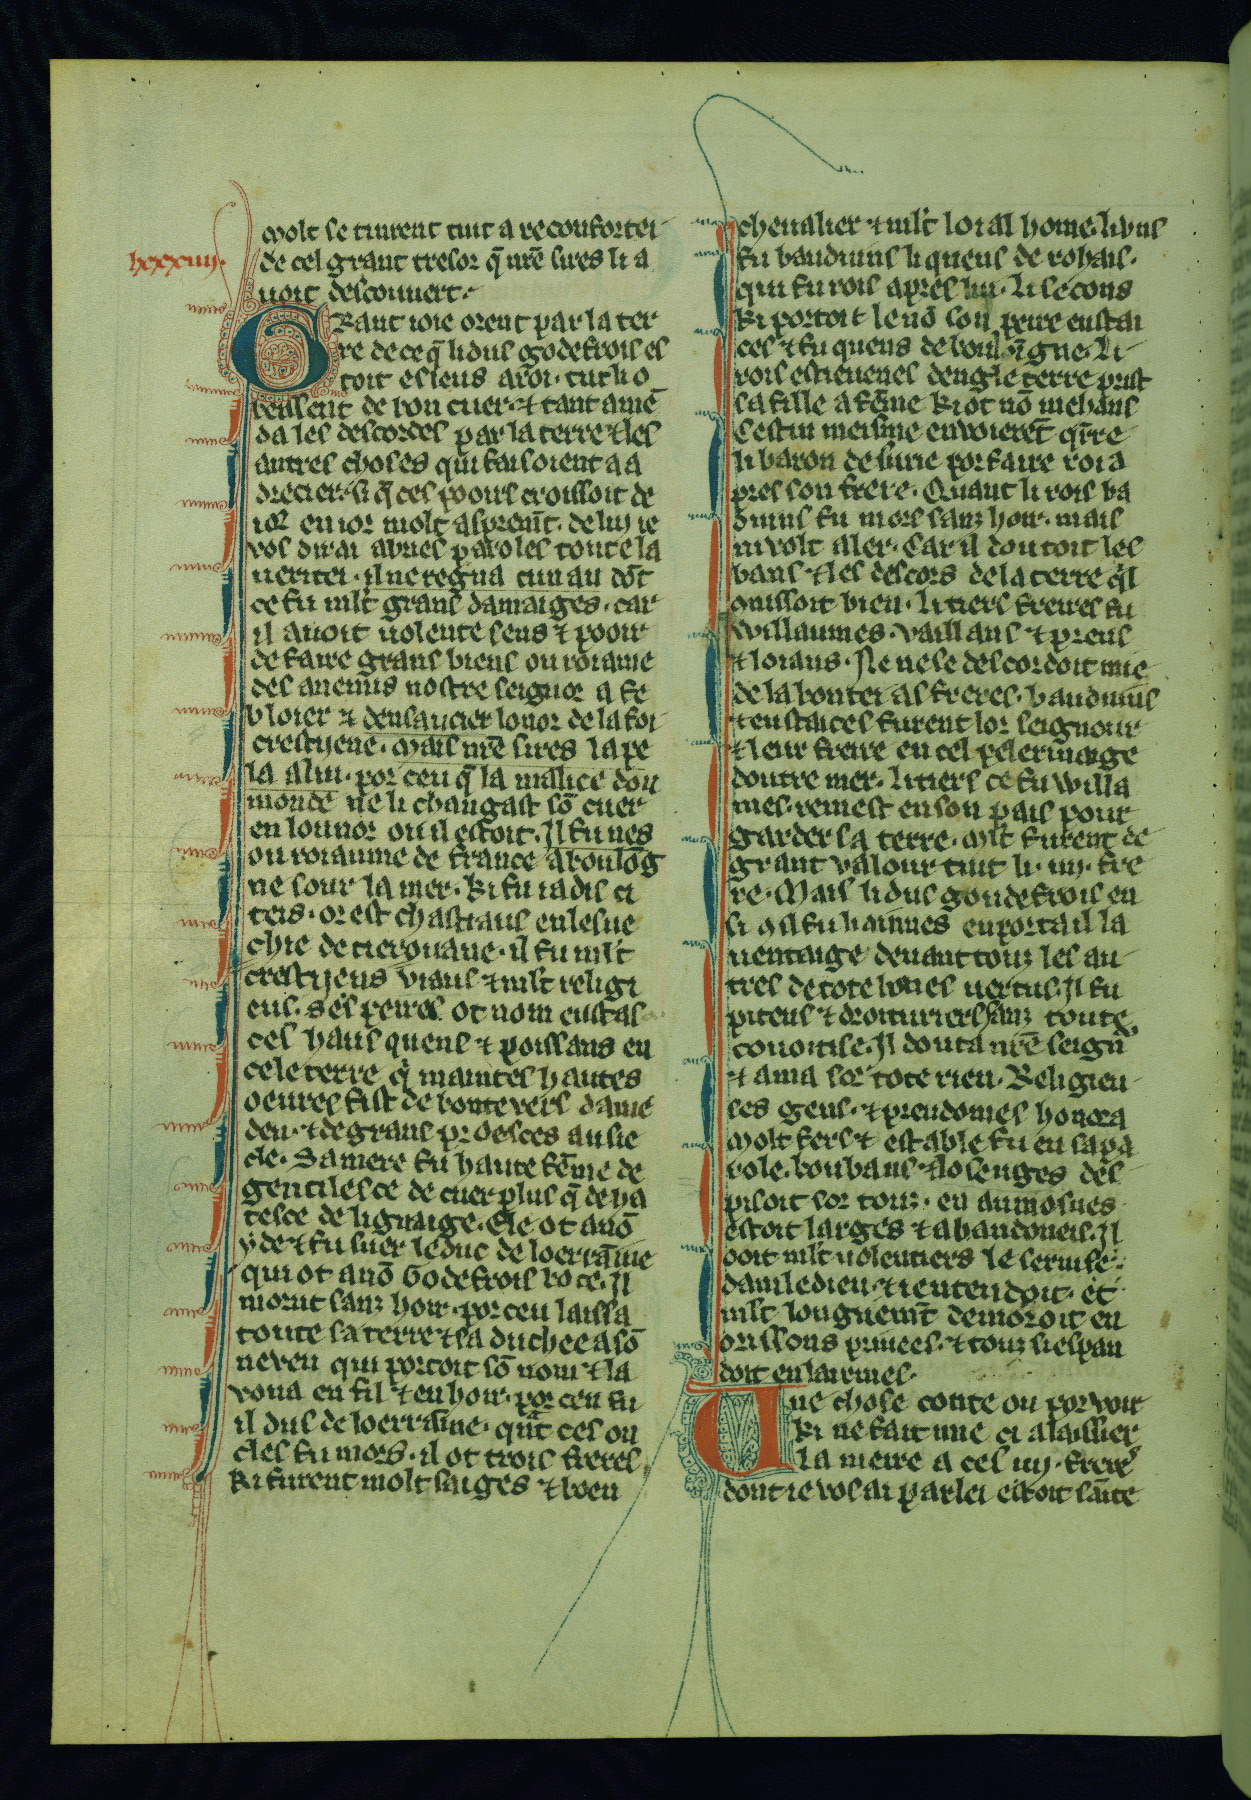 molt se tinrent tuit a reconfortei
de cel grant tresor q̄ nr̄e sires li a
lxxxiiij.
uoit descouuert.
Grant ioie orent par la ter
re de ce q̄ li dus godefrois es
toit esleus a roi. tut li o
beissent de bon cuer. ⁊ tant amē
da les descordes par la terre ⁊ les
autres choses qui faisoient a a
drecier. si q̄ ces pooirs croissoit de
ior en ior molt asprem̄t. de lui ie
vos dirai abries paroles toute la
ueritei. il ne regna cun an dōt
ce fu ml't grans damaiges. car
il auoit uolente sens ⁊ pooir
de faire grans biens ou roiame
des anemis nostre seignor a fe
bloier ⁊ densaucier lonor de la foi
crestyene. mais nr̄e sires lape
la a lui. por ceu q̄ la malice dou
monde ne li changast sō cuer
en lounor ou il estoit. Il fu nes
ou roiaume de france a boulōg
ne sour la mer. Ki fu iadis ci
teis. or est chastiaus en lesue
chie de tierouane. il fu ml't
crestijens viaus ⁊ ml't religi
eus. ses peires ot nom eustas
ces haus quens ⁊ poissans en
cele terre q̄ maintes hautes
oeures fist de bonte vers dame
deu. ⁊ de grans proesces au sie
cle. Sa mere fu haute fēme de
gentilesce de cuer plus q̄ de ha
tesce de lignaige. Ele ot anō
yde ⁊ fu suer le duc de loerraīne
qui ot anō Godefrois boce. Il
morut sanz hoir. por ceu laissa
toute sa terre ⁊ sa duchee a sō
neveu qui portoit sō nom ⁊ la
voua en fil ⁊ en hoir. por ceu fu
il dus de loerraīne. qn̄t ces on
cles fu mors. il ot trois freres
Ki furent molt saiges ⁊ boen
chevalier ⁊ ml't loial home. li vns
fu bauduins li queus de rohais.
qui fu rois apres lui. li secons
Ki portoit le nō son peire eustai
ces ⁊ fu quens de boulōigne. Li
rois estievenes dengleterre prist
sa fille a fēme Ki ot nō mehaus
Cestui meisme envoierēt q̄rre
li baron de surie por faire roi a
pres son frere. Quant li rois ba
duins fu mors sanz hoir. mais
ni volt aler. Car il doutoit les
baus ⁊ les descors de la terre q̄l
conissoit bien. li tiers freires fu
Willaumes. vaillans ⁊ preus
⁊ loiaus. Ne ne se descordoit mie
de la bontei as freres. bauduins
⁊ eustaices furent lor seignour
⁊ leur freire en cel pelerinaige
doutre mer. li tiers ce fu willa
mes. remest en son pais pour
garder sa terre. ml't furent de
grant valour tuit li .iiij. fre
re. Mais li dus goudefrois en
si 9 il fu hainnes enportail la
uentaige deuant touz les au
tres de tote bones uertus. Il fu
piteus ⁊ droituriers sanz toute
couoitise. Il douta nr̄e seign̄
⁊ ama sor tote rien. Religieu
ses gens. ⁊ preudomes honora
molt fers ⁊ estable fu en sa pa
role. boubans ⁊ losenges des
pisoit sor touz. en aumosnes
estoit larges ⁊ abandoneis. Il
ooit ml't uolentiers le seruise
damledieu. ⁊ i entendoit. et
ml't longuem̄t demoroit en
orissons priuees. ⁊ touz si espan
doit en lairmes.
Une chose conte on por voir
Ki ne fait mie ci a laissier
la meire a ces iiij. freres
dont ie vos ai parlei estoit sāite